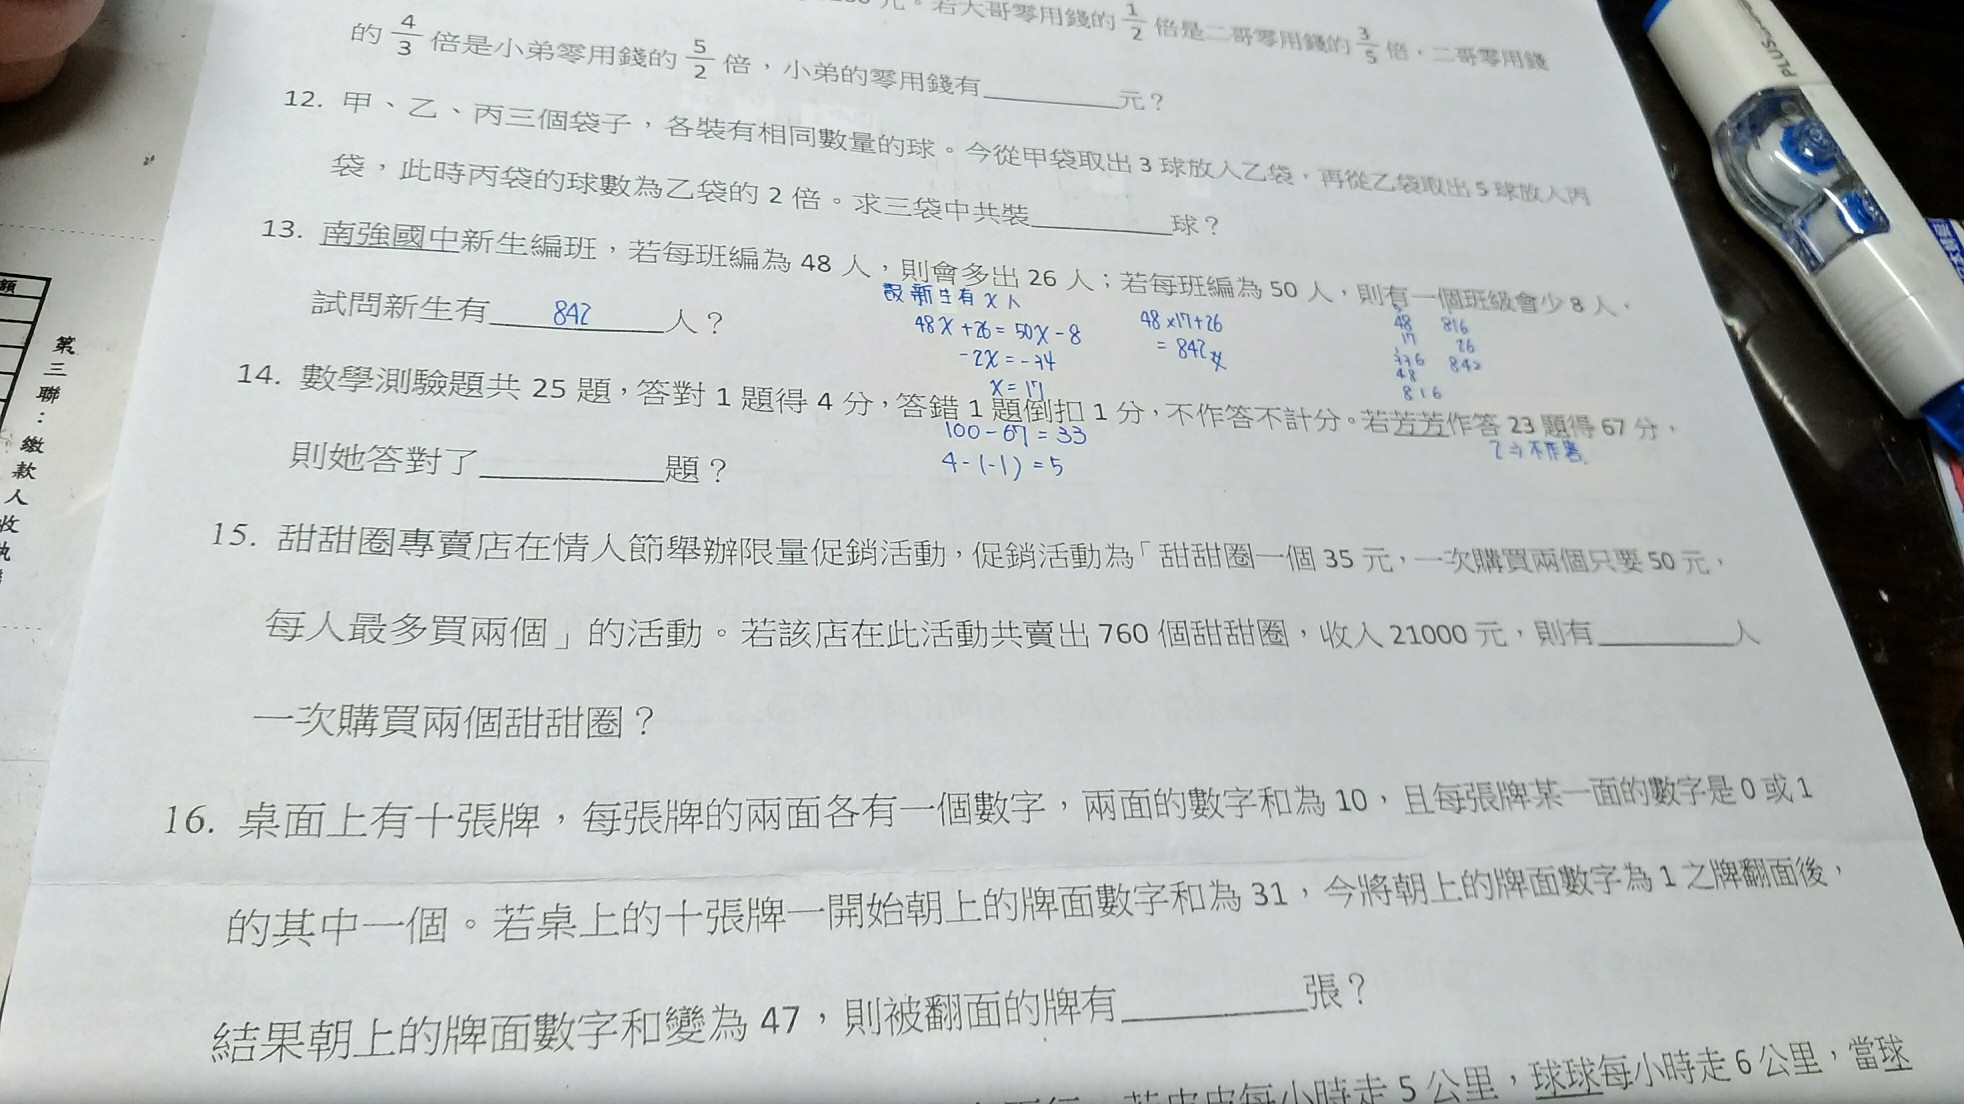 元。若大哥零用錢的 1/2 倍是二哥零用錢的 3/5 倍，二哥零用錢
的 4/3 倍是小弟零用錢的 5/2 倍，小弟的零用錢有________元？
12. 甲、乙、丙三個袋子，各裝有相同數量的球。今從甲袋取出 3 球放入乙袋，再從乙袋取出 5 球放入丙
袋，此時丙袋的球數為乙袋的 2 倍。求三袋中共裝________球？
13. 南強國中新生編班，若每班編為 48 人，則會多出 26 人；若每班編為 50 人，則有一個班級會少 8 人，
試問新生有 842 人？
設新生有 x 人
48x+26=50x-8
-2x=-34
x=17
48×17+26
=842
48
17
336
48
816
816
26
842
14. 數學測驗題共 25 題，答對 1 題得 4 分，答錯 1 題倒扣 1 分，不作答不計分。若芳芳作答 23 題得 67 分，
則她答對了________題？
100-67=33
4-(-1)=5
2⇒不作答
15. 甜甜圈專賣店在情人節舉辦限量促銷活動，促銷活動為「甜甜圈一個 35 元，一次購買兩個只要 50 元，
每人最多買兩個」的活動。若該店在此活動共賣出 760 個甜甜圈，收入 21000 元，則有________人
一次購買兩個甜甜圈？
16. 桌面上有十張牌，每張牌的兩面各有一個數字，兩面的數字和為 10，且每張牌某一面的數字是 0 或 1
的其中一個。若桌上的十張牌一開始朝上的牌面數字和為 31，今將朝上的牌面數字為 1 之牌翻面後，
結果朝上的牌面數字和變為 47，則被翻面的牌有________張？
每小時走 5 公里，球球每小時走 6 公里，當球
額
第三聯：繳款人收執
PLUS